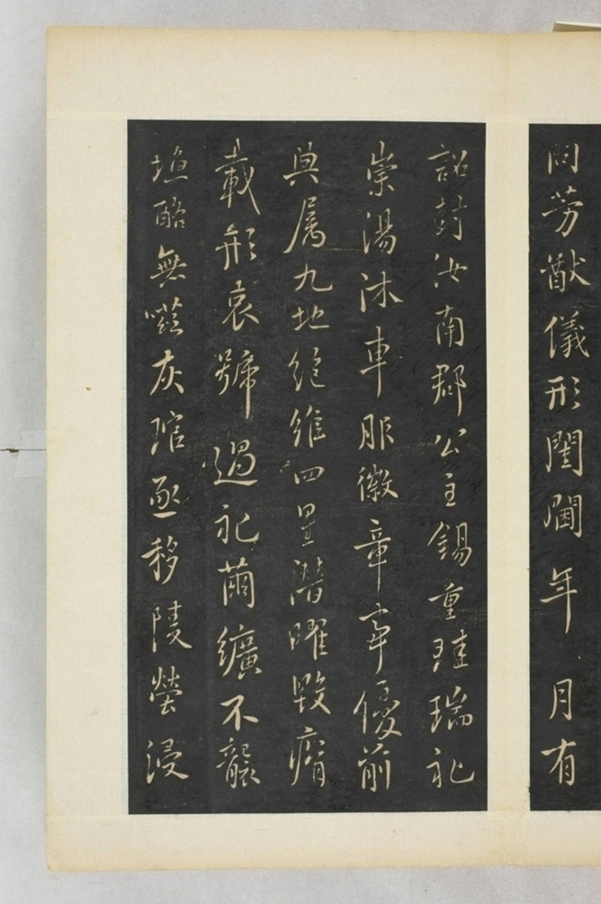 問芳猷儀形閨閫年月有
詔封汝南郡公主錫重珪瑞礼
崇湯沐車服徽章事優前
典属九地絕維四星潛曜毀瘠
載形哀號過礼繭纊不襲
塩酪無嗞灰琯亟移陵塋浸